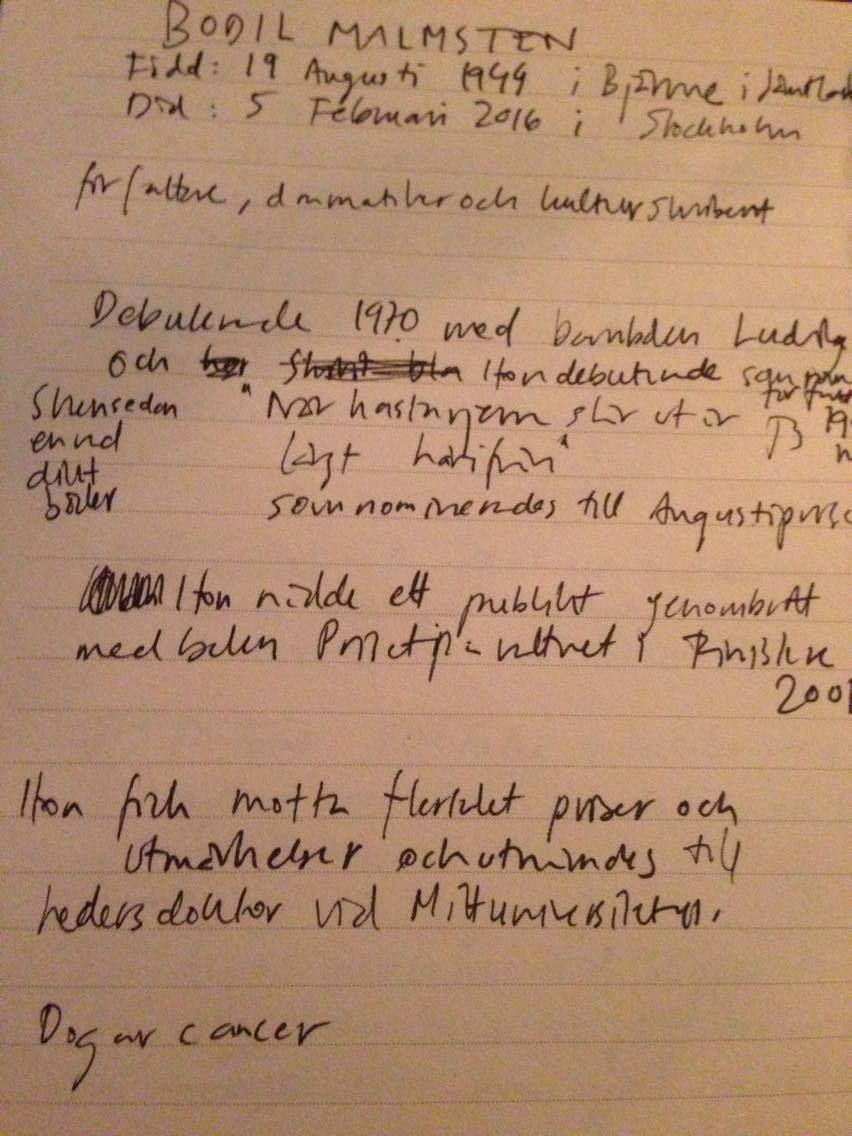 BODIL MALMSTEN
Född: 19 Augusti 1944 i Bjärme i Jämtland
Död: 5 Februari 2016 i Stockholm
författare, dramatiker och kulturskribent
Debuterade 1970 med barnboken Ludvig
och Hon debuterade som
"När kastanjerna slår ut är
Sen sedan
en rad
dikt
böcker
långt härifrån"
som nominerades till Augustipriset
Hon nådde ett publikt genombrott
med boken Priset på vattnet i Finistère
2001
Hon fick motta flertalet priser och
utmärkelser och utnämndes till
hedersdoktor vid Mittuniversitetet.
Dog av cancer